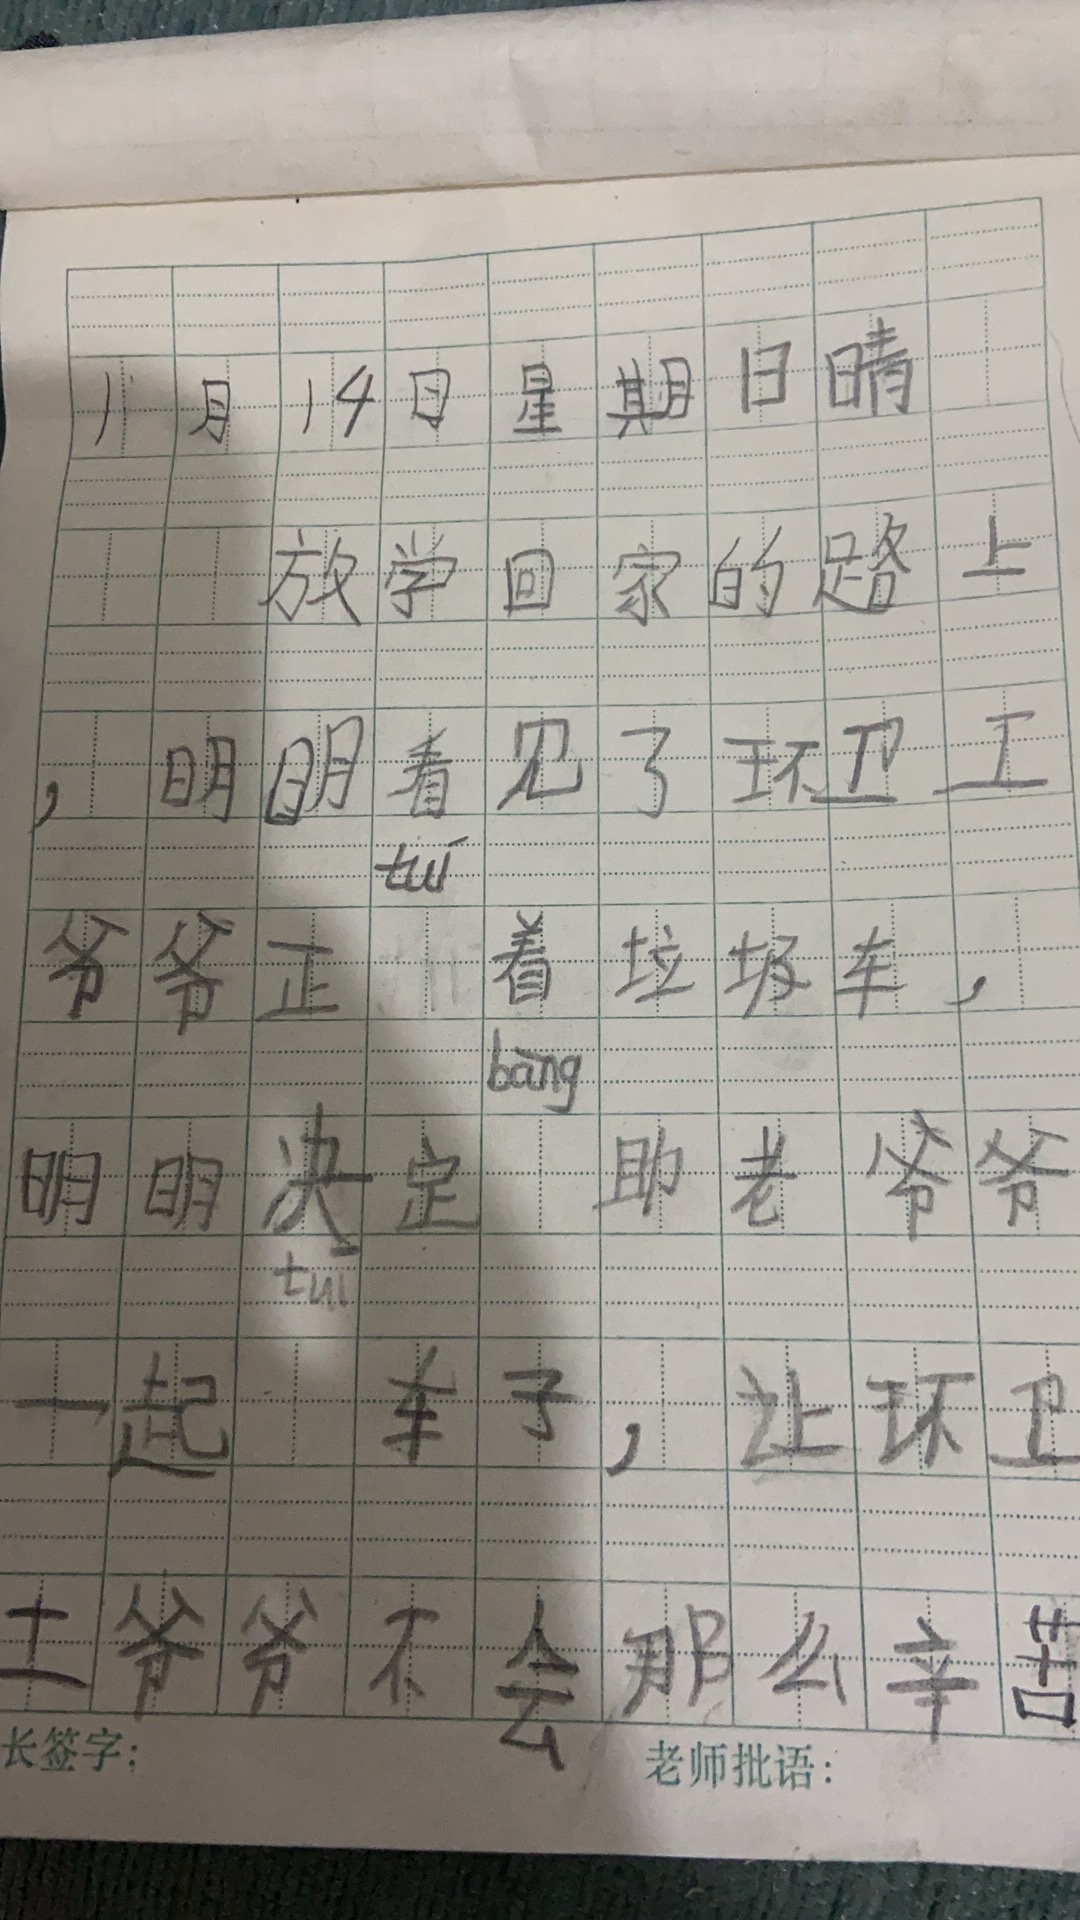 11月14日星期日晴
放学回家的路上
，明明看见了环卫工
tuī
爷爷正 着垃圾车，
bāng
明明决定 助老爷爷
tuī
一起 车子，让环卫
工爷爷不会那么辛苦
长签字：
老师批语：